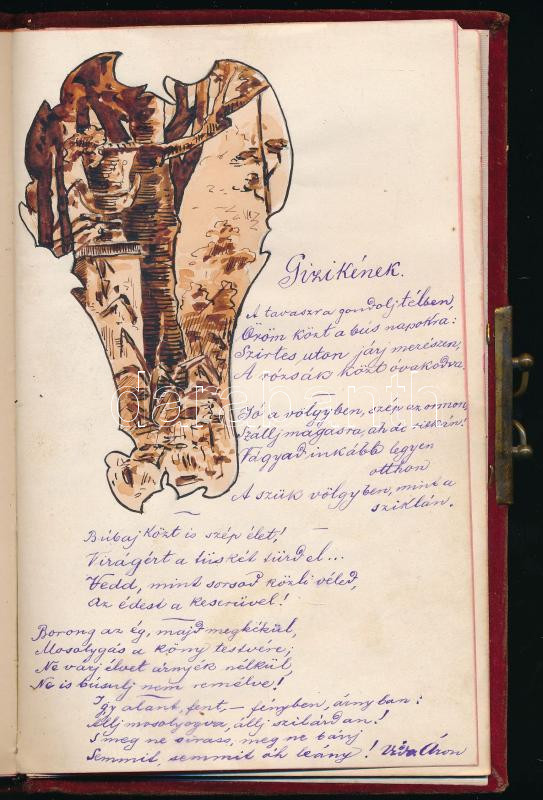 Gizikének.
A tavaszra gondolj télben,
Öröm közt a bús napokra:
Szirtes uton járj merészen,
A rózsák közt óvakodva.
Jó a völgyben, szép az ormon,
Szállj magasra, ah de ritkán!
Vágyad inkább legyen
otthon
A szük völgyben, mint a
sziklán.
Búbaj közt is szép élet!
Virágért a tüskét türd el...
Vedd, mint sorsod közli véled,
Az édest a keserüvel!
Borong az ég, majd megkékül,
Mosolygás a köny testvére;
Ne várj élvet árnyék nélkül,
Ne is búsulj nem remélve!
Igy alant, fent, – fényben, árnyban:
Állj mosolyogva, állj szilárdan!
S meg ne sirass, meg ne bánj
Semmit, semmit óh leány! Áron
darabanth